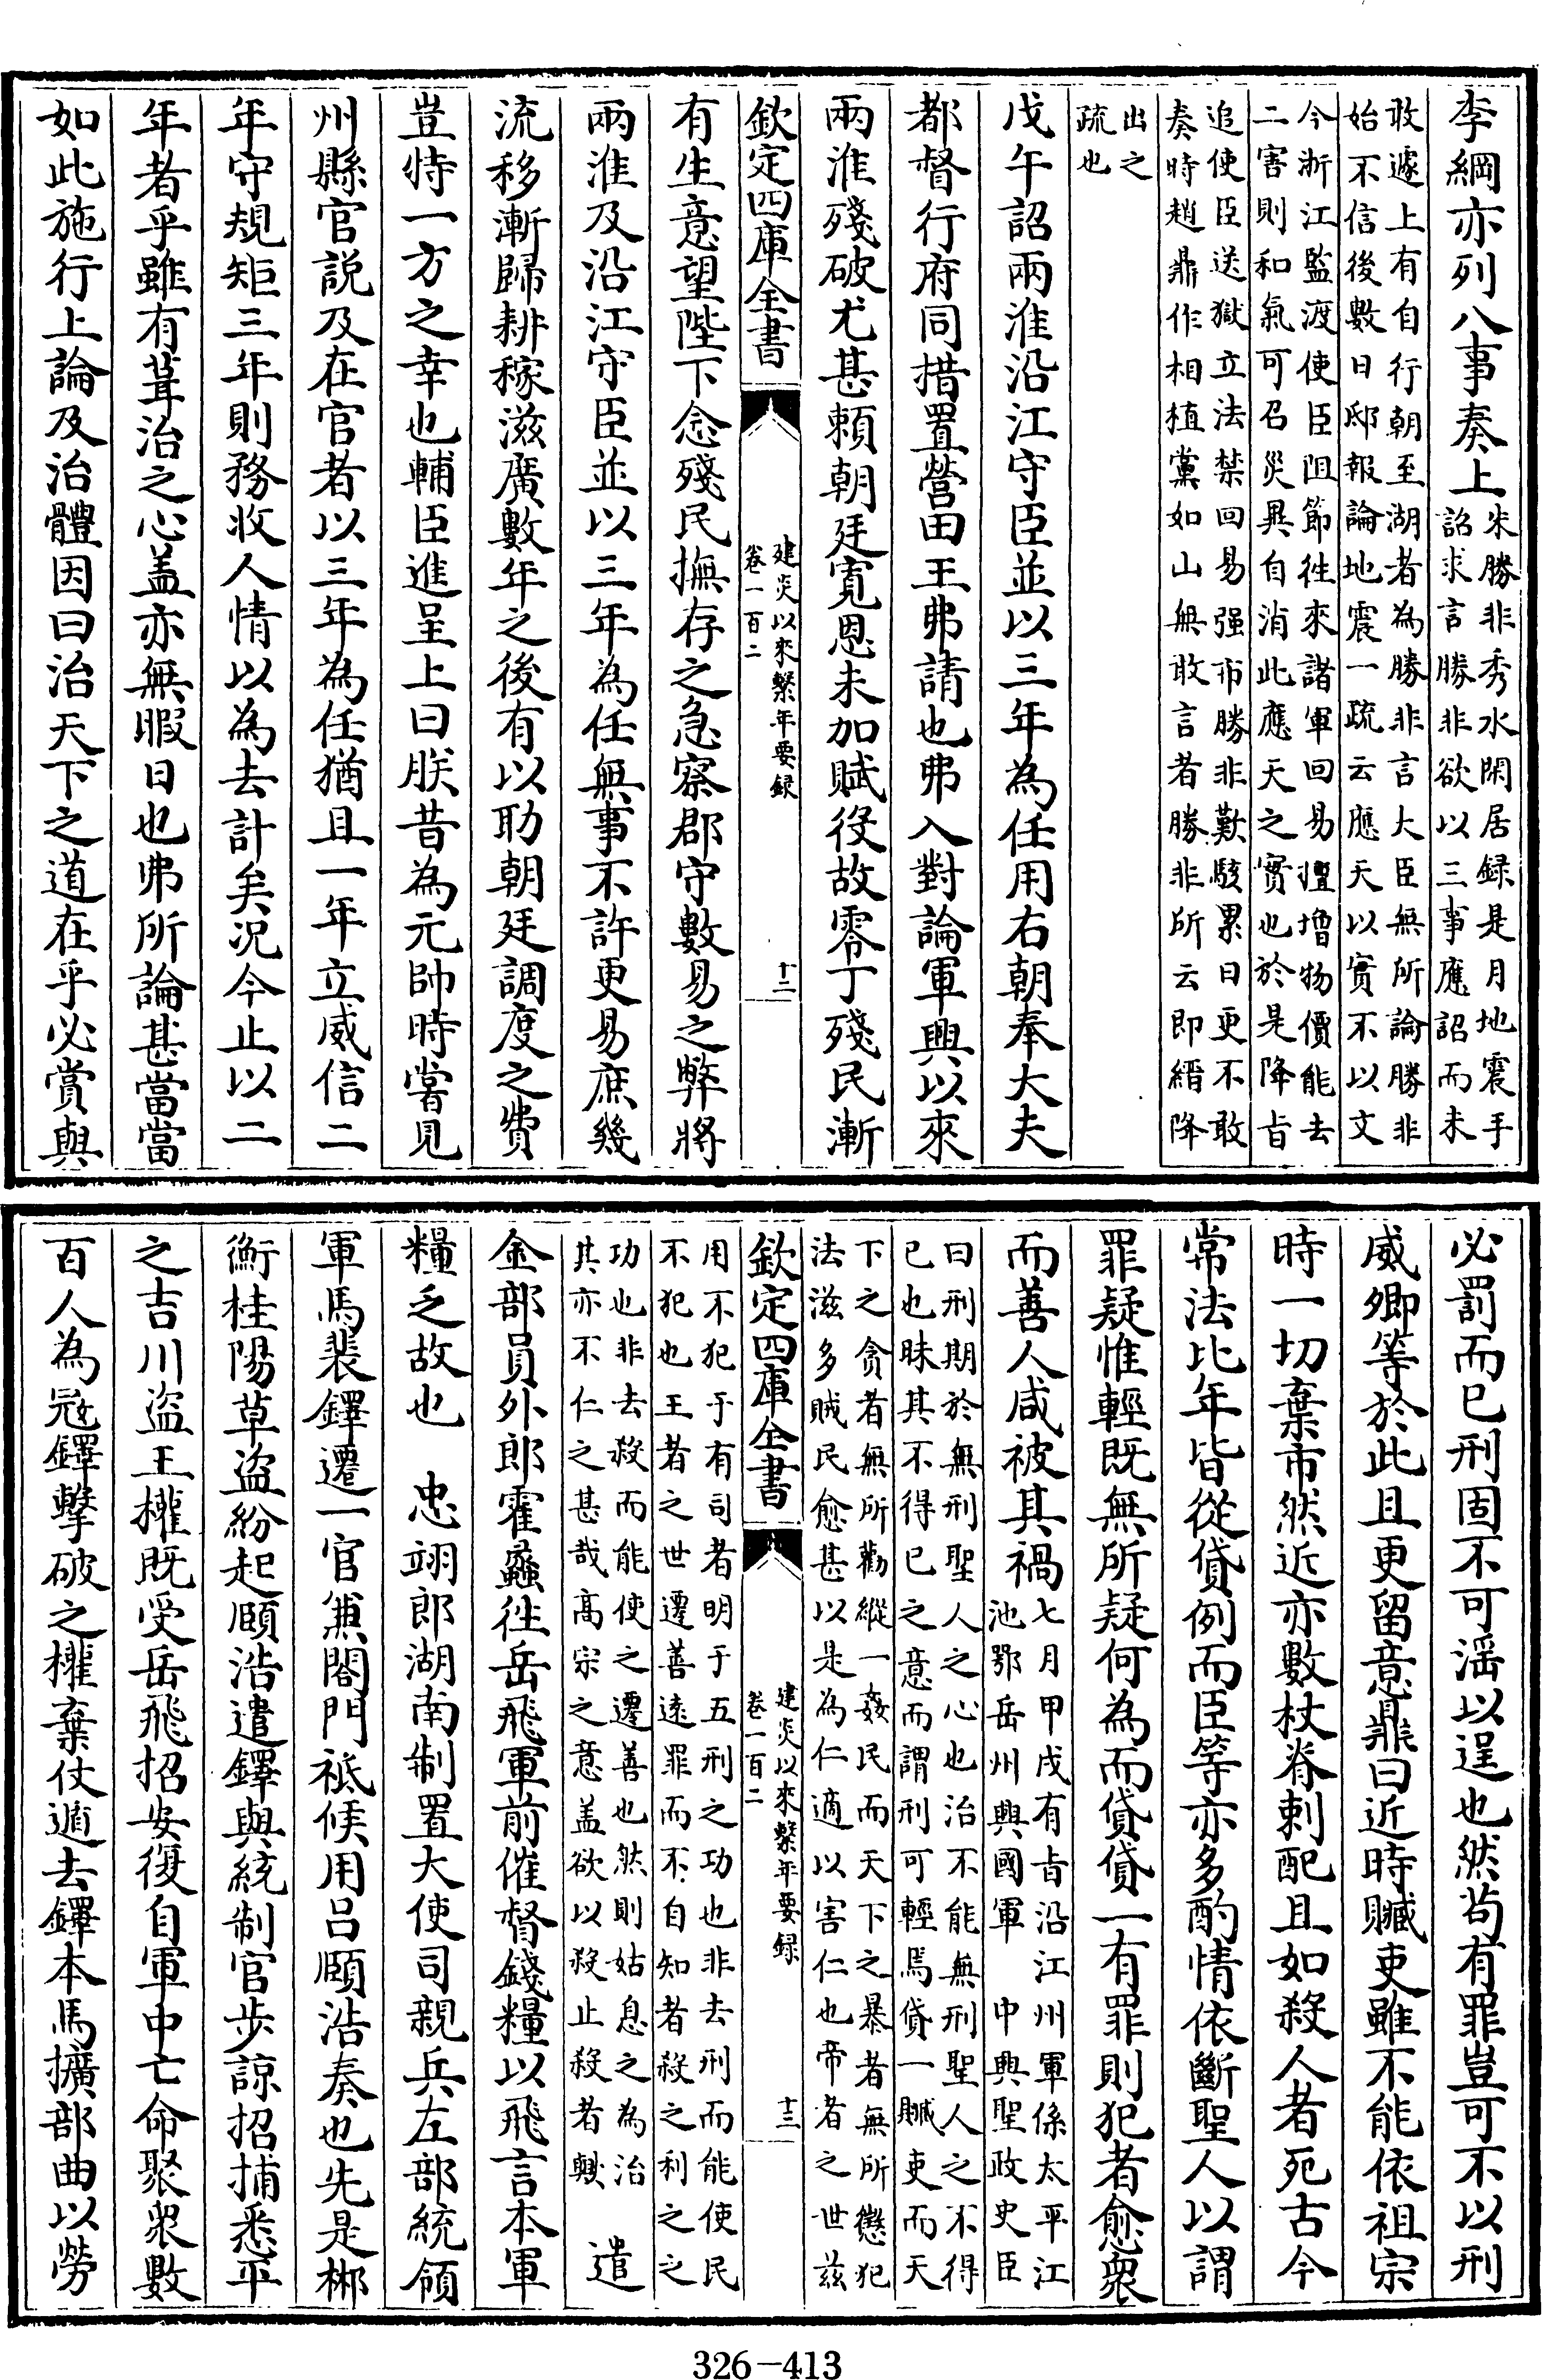 李綱亦列八事奏上朱勝非秀水閑居録是月地震手
詔求言勝非欲以三事應詔而未
敢遽上有自行朝至湖者為勝非言大臣無所論勝非
始不信後數日邸報論地震一疏云應天以實不以文
今浙江監渡使臣阻節徃來諸軍回易壇增物價能去
二害則和氣可召災異自消此應天之實也於是降㫖
追使臣送獄立法禁回易强市勝非歎駭累日更不敢
奏時趙鼎作相植黨如山無敢言者勝非所云即縉降
出之
疏也
戊午詔兩淮沿江守臣並以三年為任用右朝奉大夫
都督行府同措置營田王弗請也弗入對論軍興以來
兩淮殘破尤甚頼朝廷寛恩未加賦役故零丁殘民漸
欽定四庫全書
建炎以來繫年要録
卷一百二
十二
有生意望陛下念殘民撫存之急察郡守數易之弊將
兩淮及沿江守臣並以三年為任無事不許更易庶幾
流移漸歸耕稼滋廣數年之後有以助朝廷調度之費
豈特一方之幸也輔臣進呈上曰朕昔為元帥時嘗見
州縣官説及在官者以三年為任猶且一年立威信二
年守規矩三年則務收人情以為去計矣况今止以二
年者乎雖有葺治之心盖亦無暇日也弗所論甚當當
如此施行上論及治體因曰治天下之道在乎必賞與
必罰而已刑固不可滛以逞也然苟有罪豈可不以刑
威卿等於此且更留意鼎曰近時贓吏雖不能依祖宗
時一切棄市然近亦數杖脊刺配且如殺人者死古今
常法比年皆從貸例而臣等亦多酌情依斷聖人以謂
罪疑惟輕既無所疑何為而貸貸一有罪則犯者愈衆
而善人咸被其禍七月甲戌有㫖沿江州軍係太平江
池鄂岳州興國軍　中興聖政史臣
曰刑期於無刑聖人之心也治不能無刑聖人之不得
已也昧其不得已之意而謂刑可輕焉貸一贓吏而天
下之貪者無所勸縱一姦民而天下之暴者無所懲犯
法滋多賊民愈甚以是為仁適以害仁也帝者之世兹
欽定四庫全書
建炎以來繫年要録
卷一百二
十三
用不犯于有司者明于五刑之功也非去刑而能使民
不犯也王者之世遷善逺罪而不自知者殺之利之之
功也非去殺而能使之遷善也然則姑息之為治
其亦不仁之甚哉高宗之意盖欲以殺止殺者歟　遣
金部員外郎霍蠡徃岳飛軍前催督錢糧以飛言本軍
糧乏故也　忠翊郎湖南制置大使司親兵左部統領
軍馬裴鐸遷一官兼閤門祗候用吕頤浩奏也先是郴
衡桂陽草盜紛起頤浩遣鐸與統制官步諒招捕悉平
之吉川盜王權既受岳飛招安復自軍中亡命聚衆數
百人為冦鐸擊破之權棄仗遁去鐸本馬擴部曲以勞
326－413